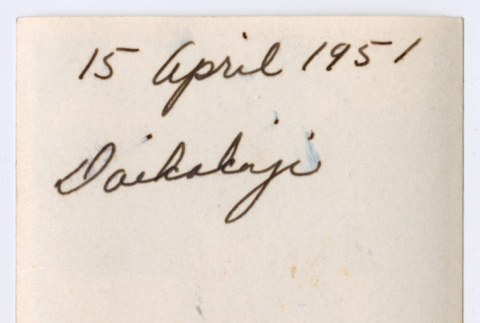 15 April 1951
Daikakuji